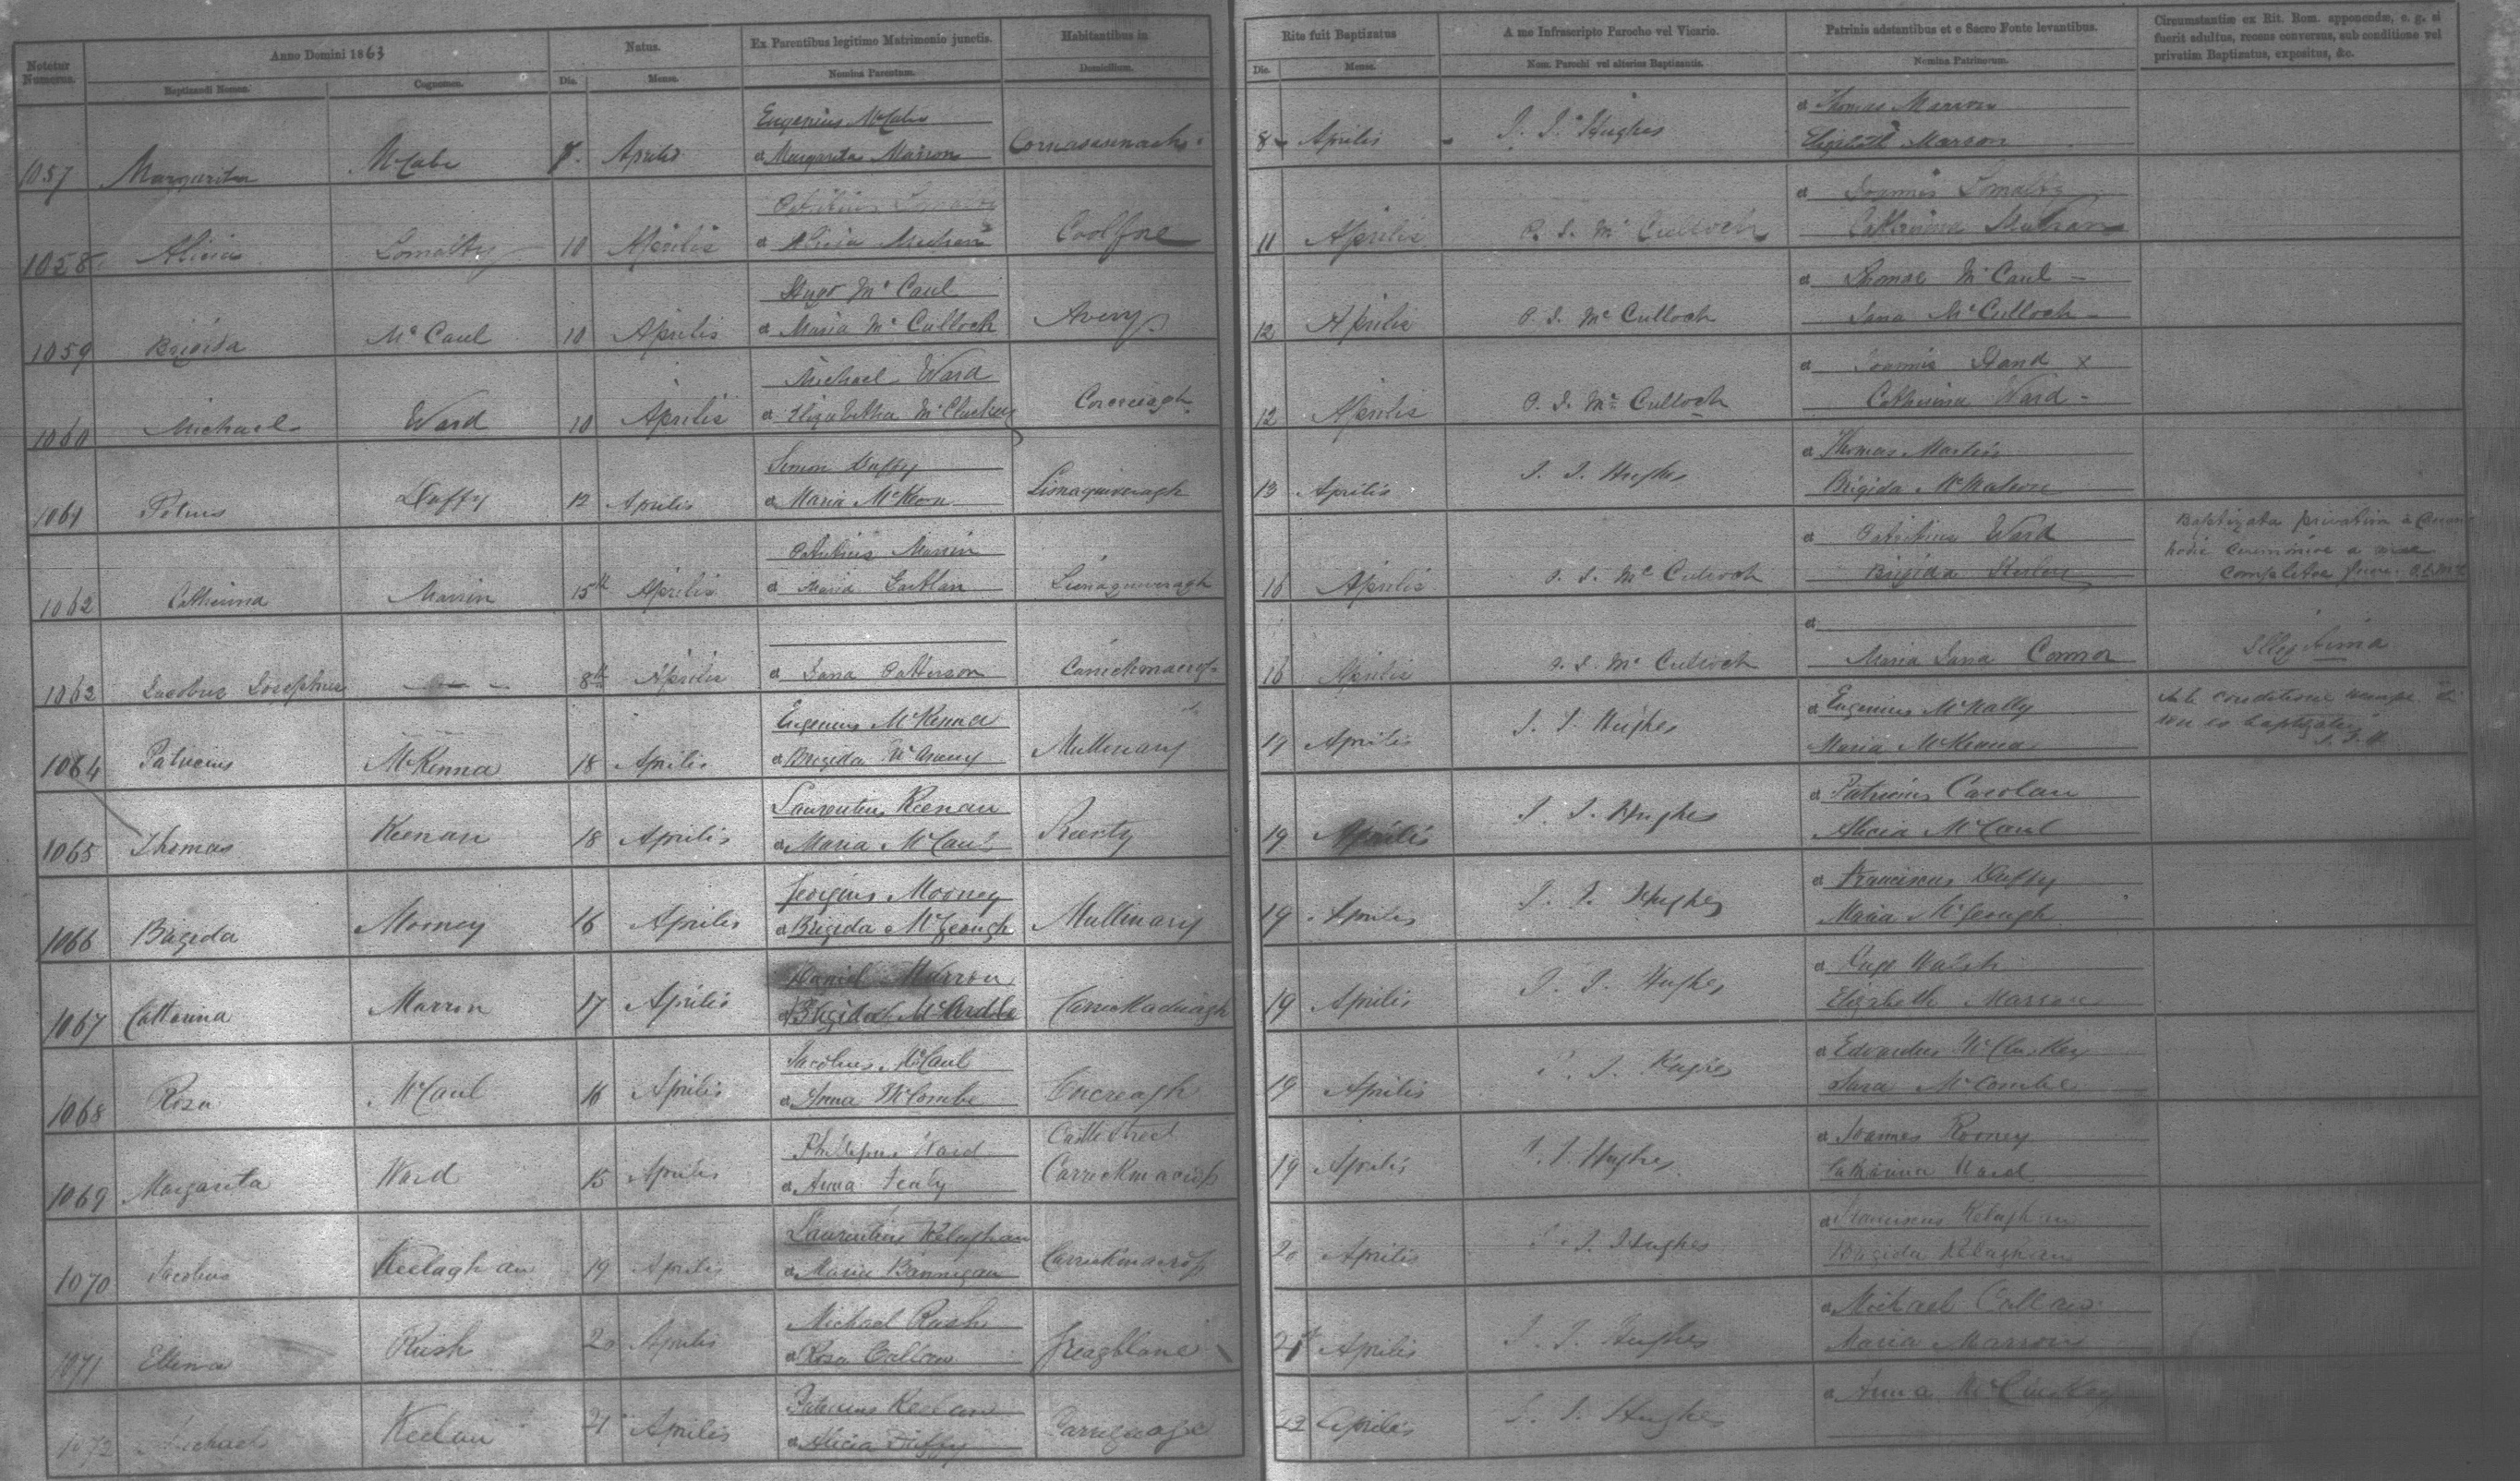 Notetur Numerus.
Anno Domini 1863
Baptizandi Nomen.
Cognomen.
Natus.
Die.
Mense.
Ex Parentibus legitimo Matrimonio junctis.
Nomina Parentum.
Habitantibus in
Domicilium.
Rite fuit Baptizatus
Die.
Mense.
A me Infrascripto Parocho vel Vicario.
Nom. Parochi vel alterius Baptizantis.
Patrinis adstantibus et e Sacro Fonte levantibus.
Nomina Patrinorum.
Circumstantiæ ex Rit. Rom. apponendæ, e. g. si
fuerit adultus, recens conversus, sub conditione vel
privatim Baptizatus, expositus, &c.
1057 Margarita McCabe 7 Aprilis
Eugenius McCabe
et Margarita Marron
8 Aprilis J. J. Hughes
et Thomas Marron
Elizabeth Marron
1058 Alicia 10 Aprilis
Patritius
et Alicia
Coolfore
11 Aprilis P. J. McCulloch
et Joannis
Catherina
1059 Brigida McCaul 10 Aprilis
Hugo McCaul
et Maria McCulloch
12 Aprilis P. J. McCulloch
et Thomas McCaul
Jana McCulloch
1060 Michael Ward 10 Aprilis
Michael Ward
et Elizabetha McCluskey
Corcreagh
12 Aprilis P. J. McCulloch
et Joannis Hand x
Catherina Ward
1061 Petrus Duffy 12 Aprilis
Simon Duffy
et Maria McKeon
13 Aprilis J. J. Hughes
et Thomas Martin
Brigida McMahon
1062 Catherina Marrin 15th Aprilis
Patritius Marrin
et Maria Gartlan
16 Aprilis P. J. McCulloch
et Patritius Ward
Brigida
Baptizata privatim a
hodie
1063 Jacobus Josephus — — — 8th Aprilis
et Jana Patterson
Carrickmacross
16 Aprilis P. J. McCulloch
et
Maria Jana Connor
1064 Patricius McKenna 18 Aprilis
Eugenius McKenna
et Brigida
Mullinary
19 Aprilis J. J. Hughes
et Eugenius McNally
Maria McKenna
J. J. H.
1065 Thomas Keenan 18 Aprilis
Laurentius Keenan
et Maria McCaul
19 Aprilis J. J. Hughes
et Patricius Carolan
Alicia McCaul
1066 Brigida Mooney 16 Aprilis
Georgius Mooney
et Brigida McGeough
Mullinary
19 Aprilis J. J. Hughes
et Franciscus Duffy
Maria McGeough
1067 Catharina Marron 17 Aprilis
Daniel Marron
et Brigida McArdle
19 Aprilis J. J. Hughes
et Hugo Walsh
Elizabeth Marron
1068 Rosa McCaul 16 Aprilis
Jacobus McCaul
et Anna McCombe
19 Aprilis J. J. Hughes
et Edvardus McCluskey
Sara McCombe
1069 Margarita Ward 15 Aprilis
Phillipus Ward
et Anna
Castle Street
Carrickmacross
19 Aprilis J. J. Hughes
et Joannes Rooney
Catharina Ward
1070 Jacobus Keelaghan 19 Aprilis
Laurentius Kelaghan
et Maria Bannigan
Carrickmacross
20 Aprilis J. J. Hughes
et Franciscus Kelaghan
Brigida Kelaghan
1071 Ellena Rush 20 Aprilis
Michael Rush
et Rosa Callan
21 Aprilis J. J. Hughes
et Michael Callan
Maria Marron
1072 Michael Keelan 21 Aprilis
Patricius Keelan
et Alicia Duffy
22 Aprilis J. J. Hughes
et Anna McCluskey